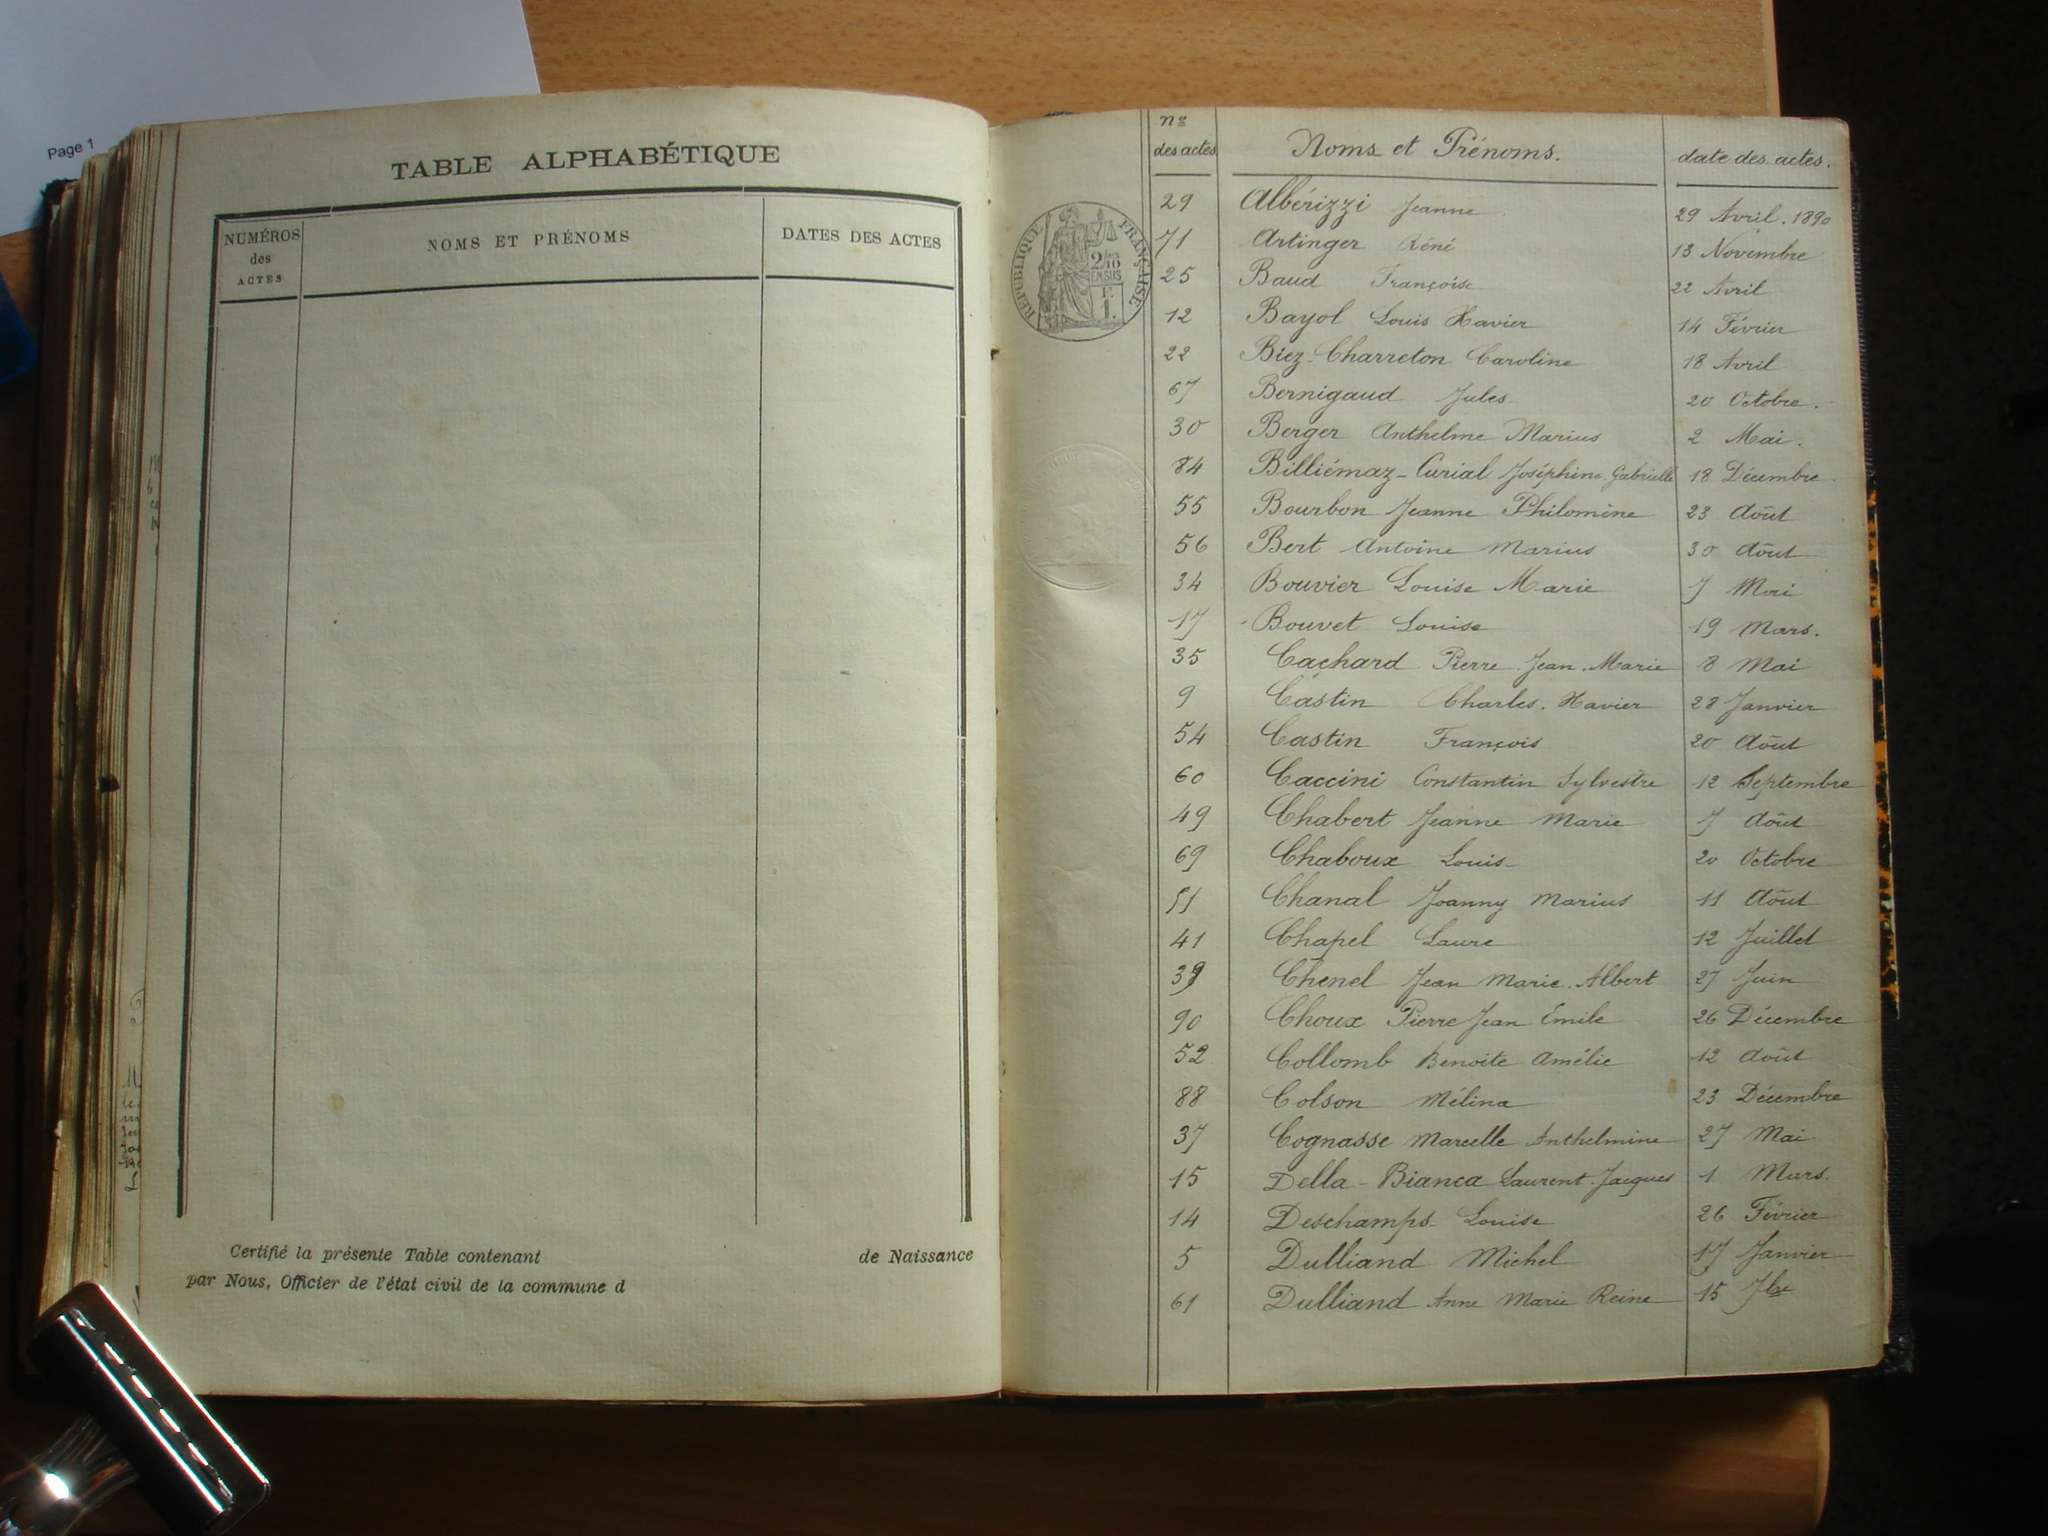 Page 1
TABLE ALPHABÉTIQUE
NUMÉROS des ACTES
NOMS ET PRÉNOMS
DATES DES ACTES
Certifié la présente Table contenant de Naissance
par Nous, Officier de l'état civil de la commune d
RÉPUBLIQUE FRANÇAISE
2/10 EN SUS
F. 1.
nos des actes Noms et Prénoms. date des actes.
29 Albérizzi Jeanne 29 Avril. 1890
71 Artinger Réné 13 Novembre
25 Baud Françoise 22 Avril
12 Bayol Louis Xavier 14 Février
22 Biez-Charreton Caroline 18 Avril
67 Bernigaud Jules 20 Octobre.
30 Berger Anthelme Marius 2 Mai.
84 Billiémaz-Curial Joséphine Gabrielle 18 Décembre.
55 Bourbon Jeanne Philomène 23 Août
56 Bert Antoine Marius 30 Août
34 Bouvier Louise Marie 7 Mai
17 Bouvet Louise 19 Mars.
35 Cachard Pierre Jean Marie 8 Mai
9 Castin Charles. Xavier 28 Janvier
54 Castin François 20 Août
60 Caccini Constantin Sylvestre 12 Septembre
49 Chabert Jeanne Marie 7 Août
69 Chaboux Louis 20 Octobre
51 Chanal Joanny Marius 11 Août
41 Chapel Laure 12 Juillet
39 Chenel Jean Marie. Albert 27 Juin
90 Choux Pierre Jean Emile 26 Décembre
52 Collomb Benoite Amélie 12 Août
88 Colson Mélina 23 Décembre
37 Cognasse Marcelle Anthelmine 27 Mai
15 Della-Bianca Laurent. Jacques 1 Mars.
14 Deschamps Louise 26 Février
5 Dulliand Michel 17 Janvier
61 Dulliand Anne Marie Reine 15 7bre